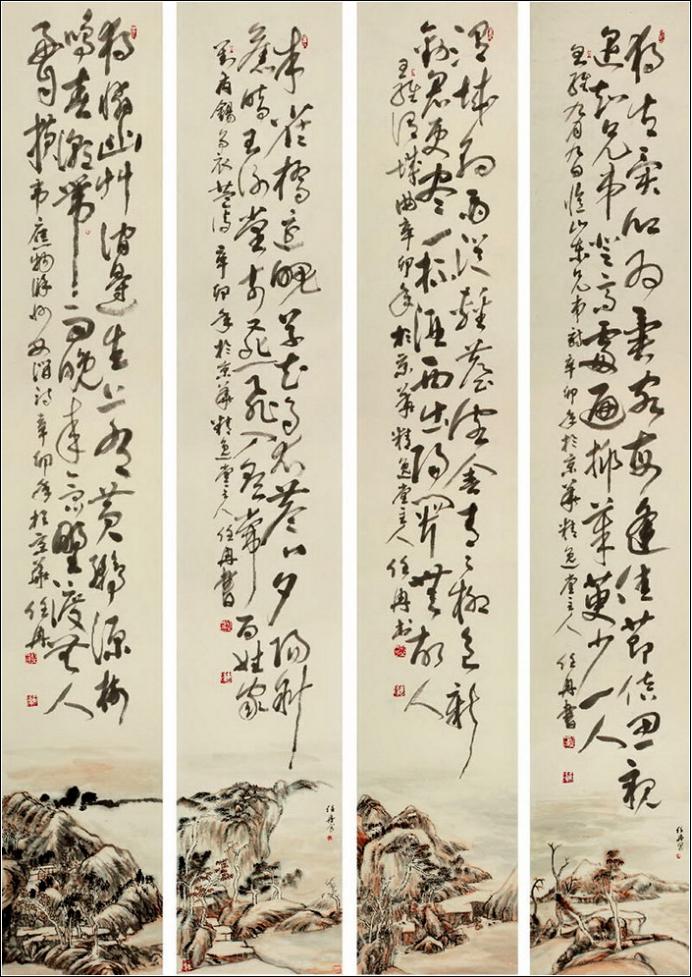 獨在異鄉為異客每逢佳節倍思親
遥知兄弟登高處遍插茱萸少一人
王維九月九日憶山東兄弟詩辛卯年於京華精逸堂主人任冉書
任冉寫
渭城朝雨浥輕塵客舍青青柳色新
勸君更盡一杯酒西出陽關無故人
王維渭城曲辛卯年於京華精逸堂主人任冉書
朱雀橋邊野草花烏衣巷口夕陽斜
舊時王謝堂前燕飛入尋常百姓家
劉禹錫烏衣巷詩辛卯年於京華精逸堂主人任冉書
任冉寫
獨憐幽草澗邊生上有黃鸝深樹
鳴春潮帶雨晚來急野渡無人
舟自橫韋應物滁州西澗詩辛卯年於京華任冉